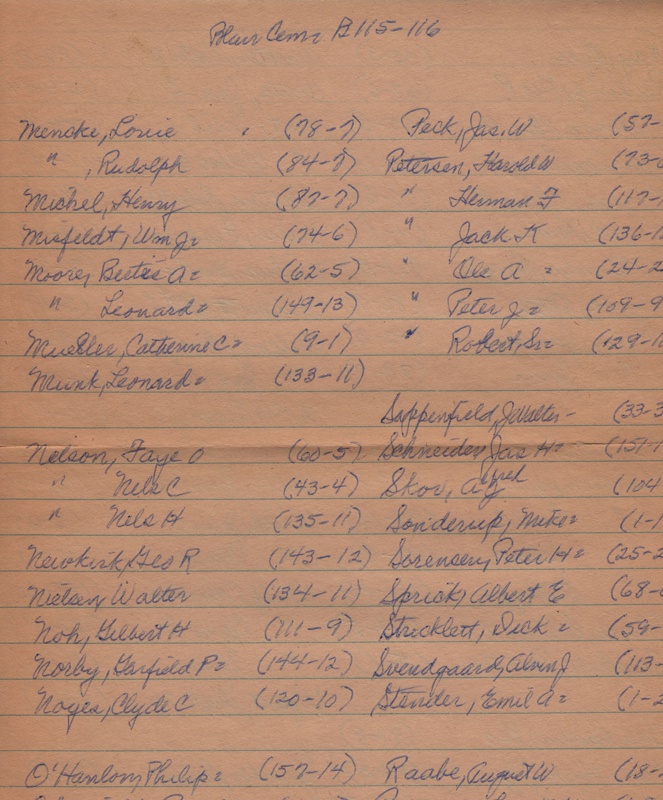 Blair Cem= B 115-116
Mencke, Louie (78-7) Peck, Jas. W (57-
" , Rudolph (84-7) Petersen, Harold W (73-
Michel, Henry (87-7) " Herman F (117-1
Misfeldt, Wm J= (74-6) " Jack K (136-1
Moore, Bertie A= (62-5) " Ole A = (24-2
" Leonard= (149-13) " Peter J= (109-9
Mueller, Catherine C= (9-1) " Robert, Sr= (129-1
Munk, Leonard= (133-11)
Sappenfield, J Walter- (33-3
Nelson, Faye O (60-5) Schneider, Jas H= (151-1
" Nels C (43-4) Skov, Alfred (104
" Nils H (135-11) Sonderup, Mike= (1-1
Newkirk, Geo R (143-12) Sorensen, Peter H= (25-2
Nielsen, Walter (134-11) Sprick, Albert E (68-
Noh, Gilbert H (111-9) Stricklett, Dick= (59-
Norby, Garfield P= (144-12) Svendgaard, Alvin J (113-
Noyes, Clyde C (120-10) Stender, Emil A= (1-2
O'Hanlon, Philip= (157-14) Raabe, August W (18-